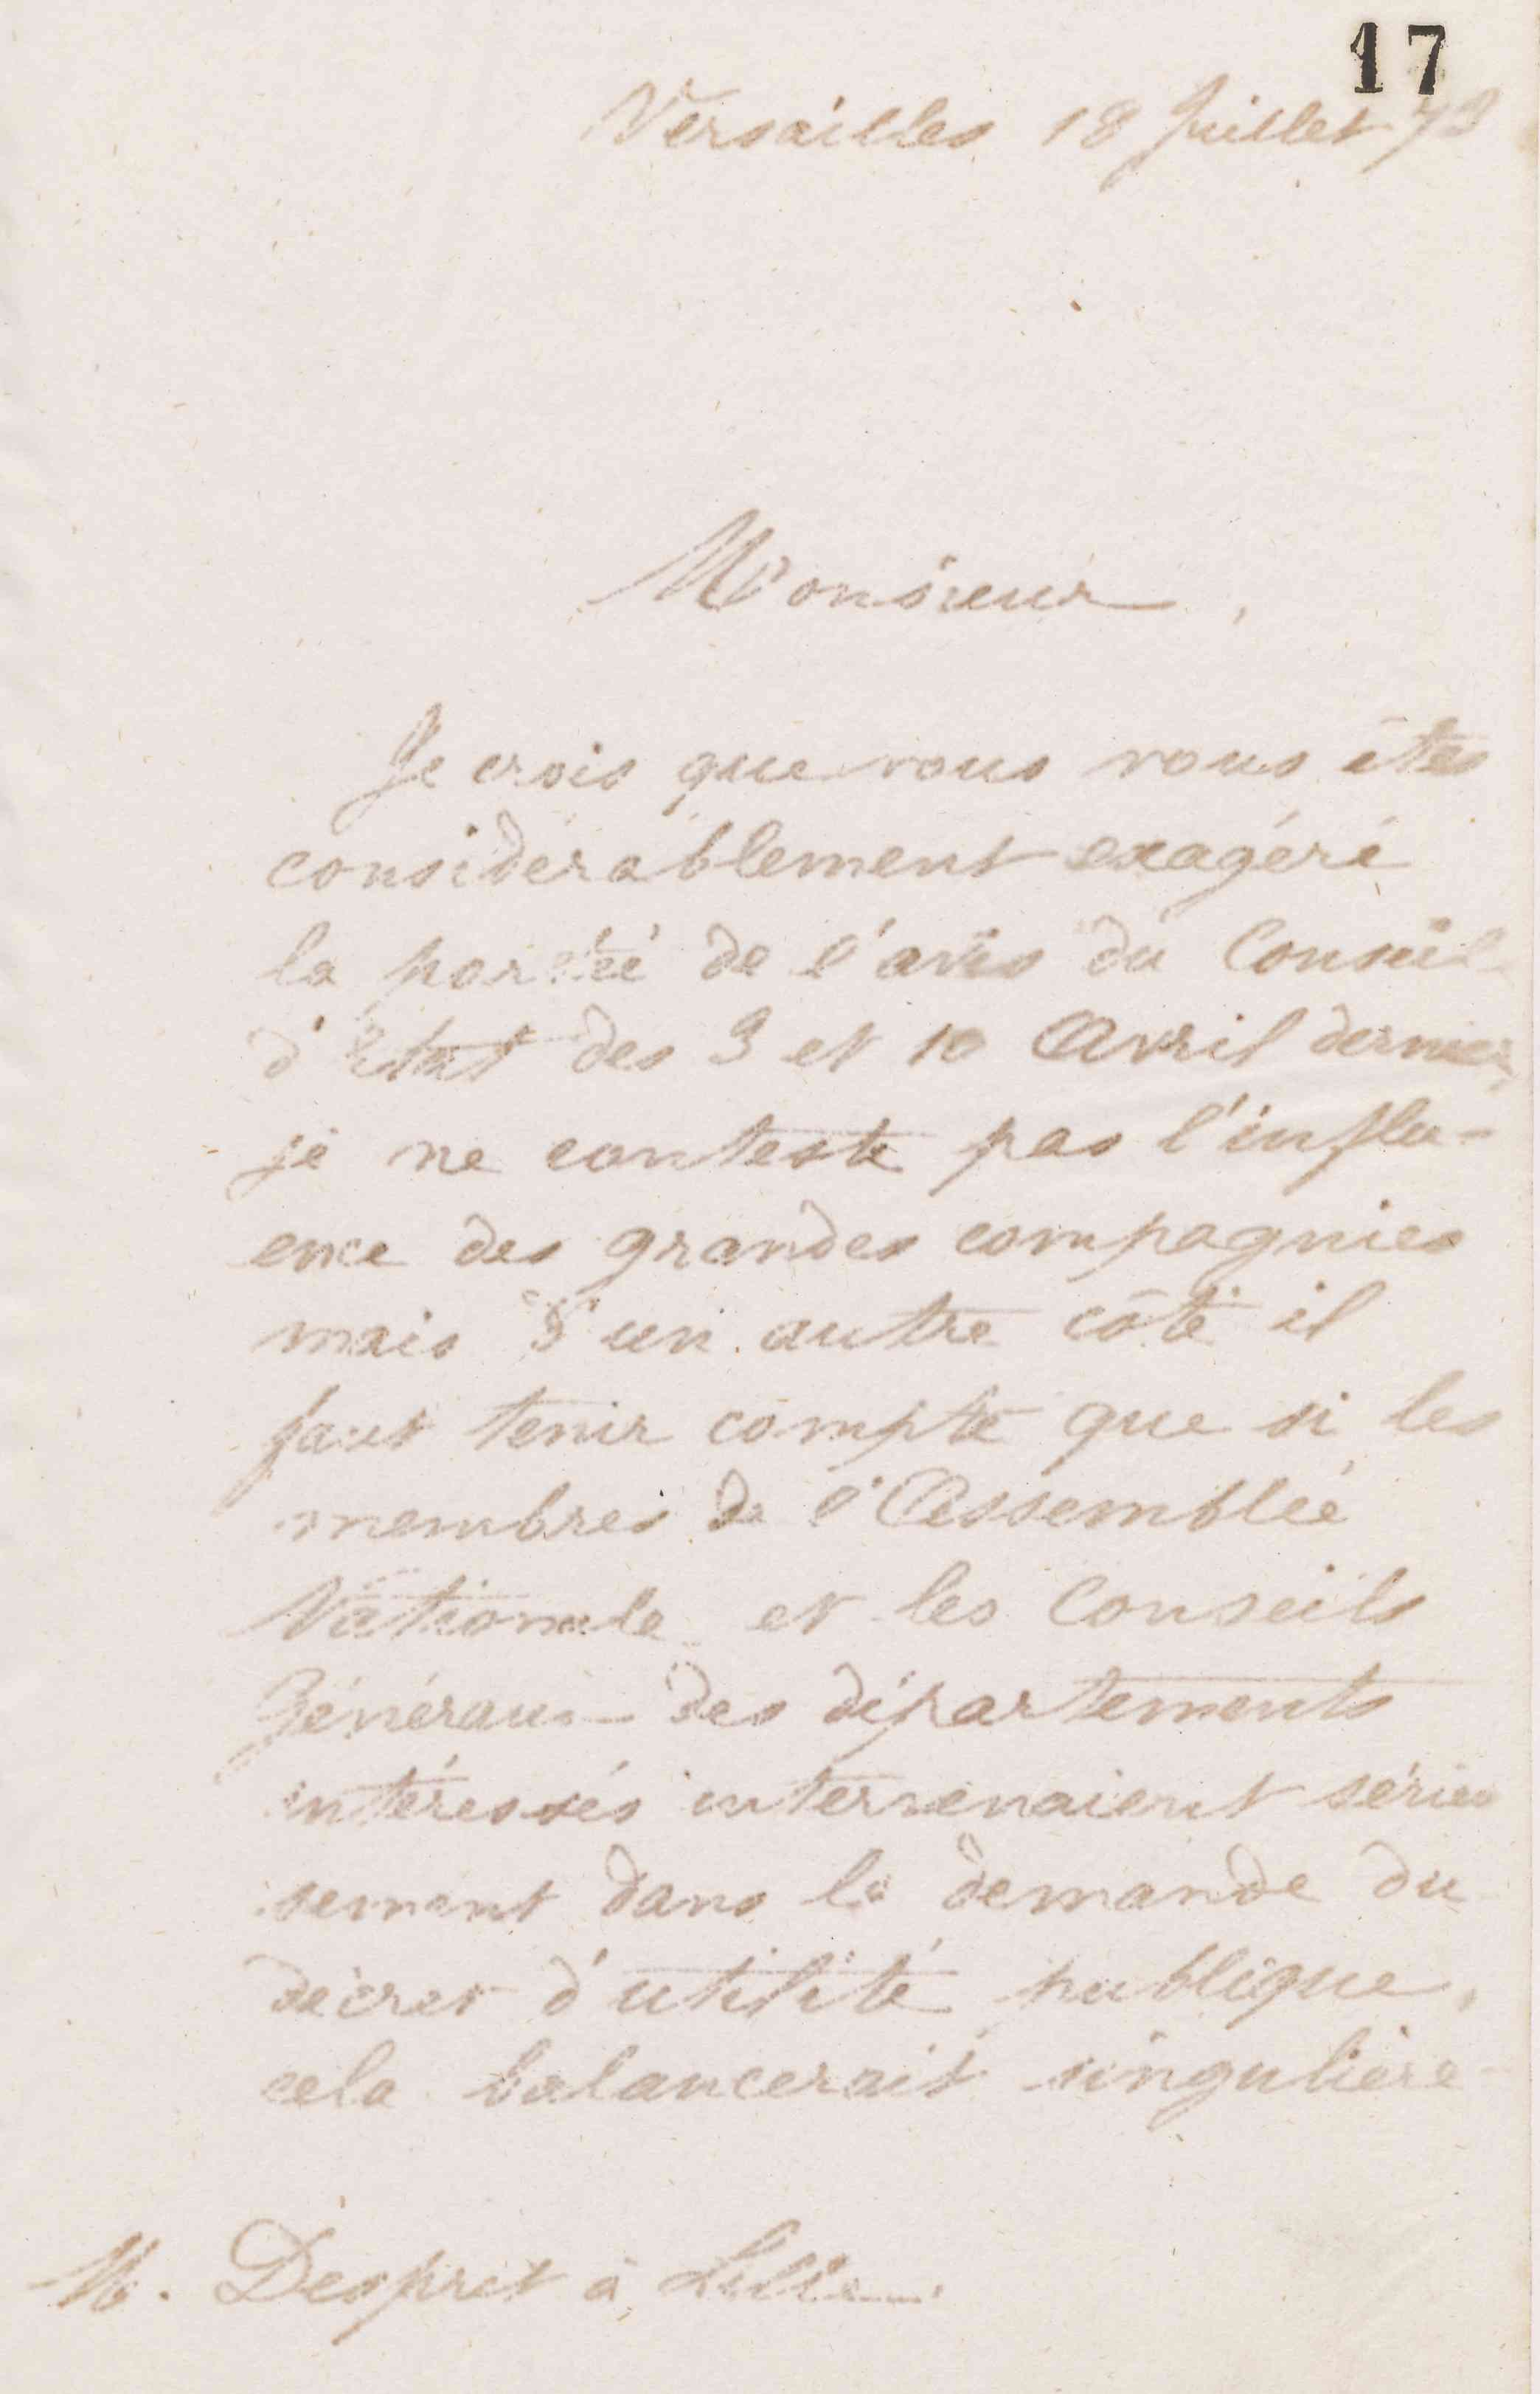 17
Versailles 18 Juillet 73
Monsieur,
Je crois que vous vous êtes
considérablement exagéré
la portée de l'avis du Conseil
d'Etat des 3 et 10 Avril dernier,
je ne conteste pas l'influ-
ence des grandes compagnies
mais d'un autre côté il
faut tenir compte que si les
membres de l'Assemblée
Nationale et les Conseils
Généraux des départements
intéressés intervenaient sérieu
sement dans la demande du
décret d'utilité publique,
cela balancerait singulière-
M. Despret à Lille